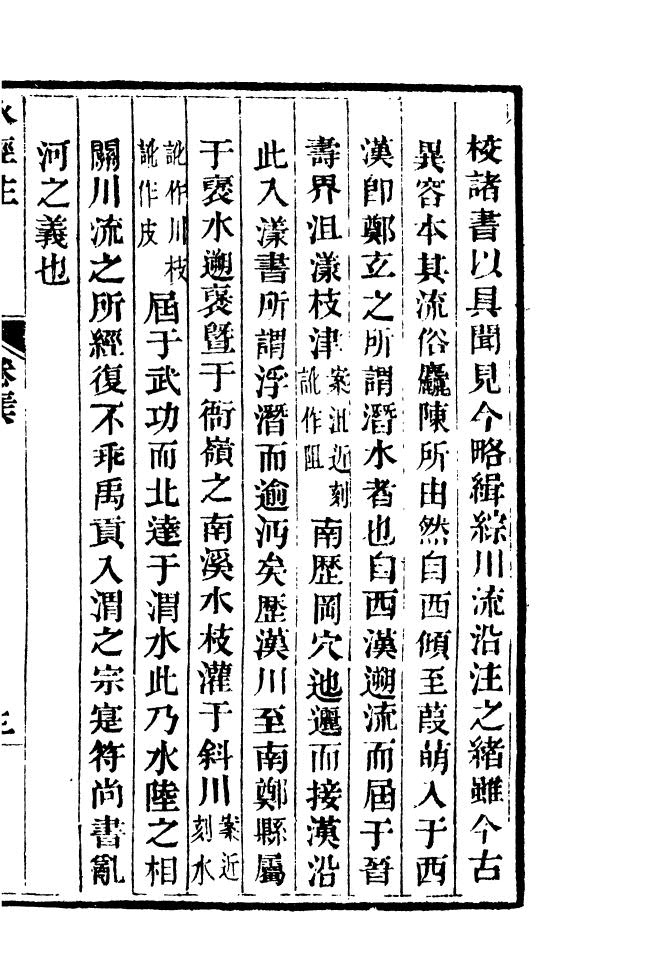 校諸書以具聞見今略緝綜川流沿注之緒雖今古
異容本其流俗麤陳所由然自西傾至葭萌入于西
漢卽鄭玄之所謂潛水者也自西漢遡流而屆于晉
壽界沮漾枝津案沮近刻訛作阻南歴岡穴迆邐而接漢沿
此入漾書所謂浮潛而逾沔矣歴漢川至南鄭縣屬
于襃水遡襃曁于衙嶺之南溪水枝灌于斜川案近刻水
訛作川枝訛作皮屆于武功而北達于渭水此乃水陸之相
關川流之所經復不乖禹貢入渭之宗寔符尚書亂
河之義也
水經注